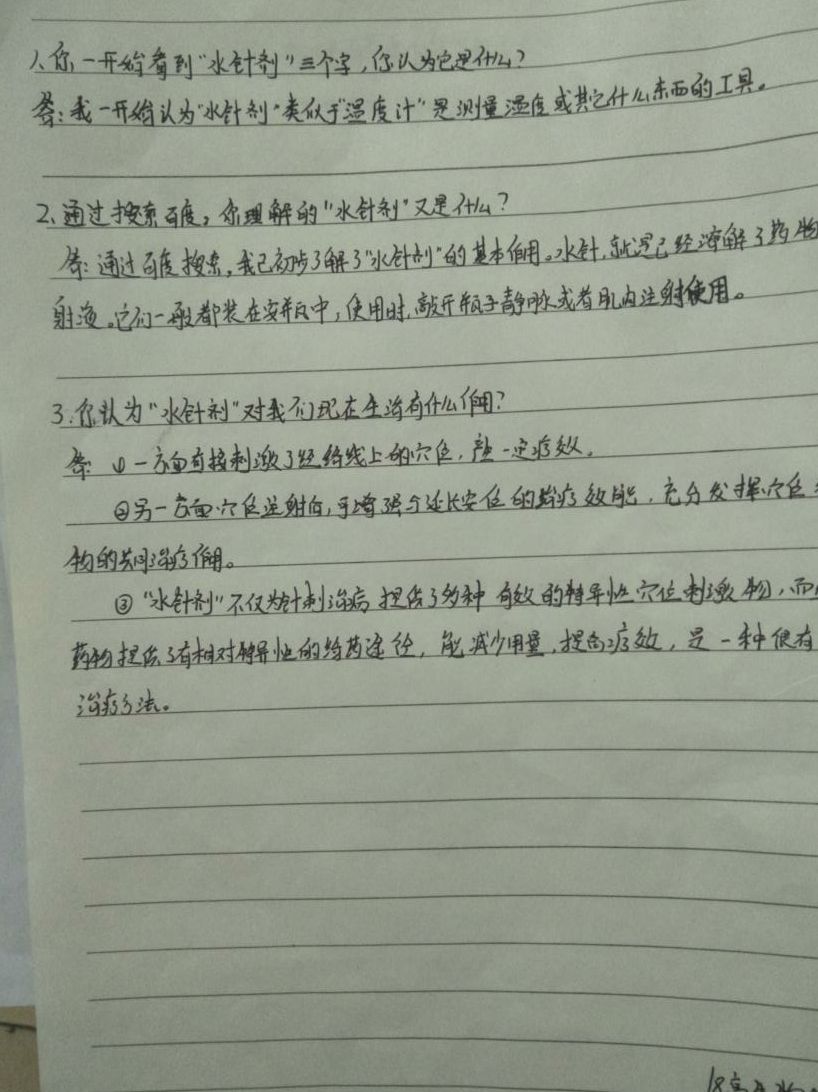 1、你一开始看到“水针剂”三个字，你认为它是什么？
答：我一开始认为“水针剂”类似于“温度计”是测量湿度或其它什么东西的工具。
2、通过搜索百度，你理解的“水针剂”又是什么？
答：通过百度搜索，我已初步了解了“水针剂”的基本作用。水针，就是已经溶解了药物
射液。它们一般都装在安瓶中，使用时，敲开瓶子静脉或者肌内注射使用。
3.你认为“水针剂”对我们现在生活有什么作用？
答：①一方面直接刺激了经络线上的穴位，产生一定疗效。
②另一方面穴位注射后，可增强与延长安位的治疗效能，充分发挥穴位
物的共同治疗作用。
③“水针剂”不仅为针刺治病提供了多种有效的特异性穴位刺激物，而
药物提供了有相对特异性的给药途径，能减少用量，提高疗效，是一种很有
治疗方法。